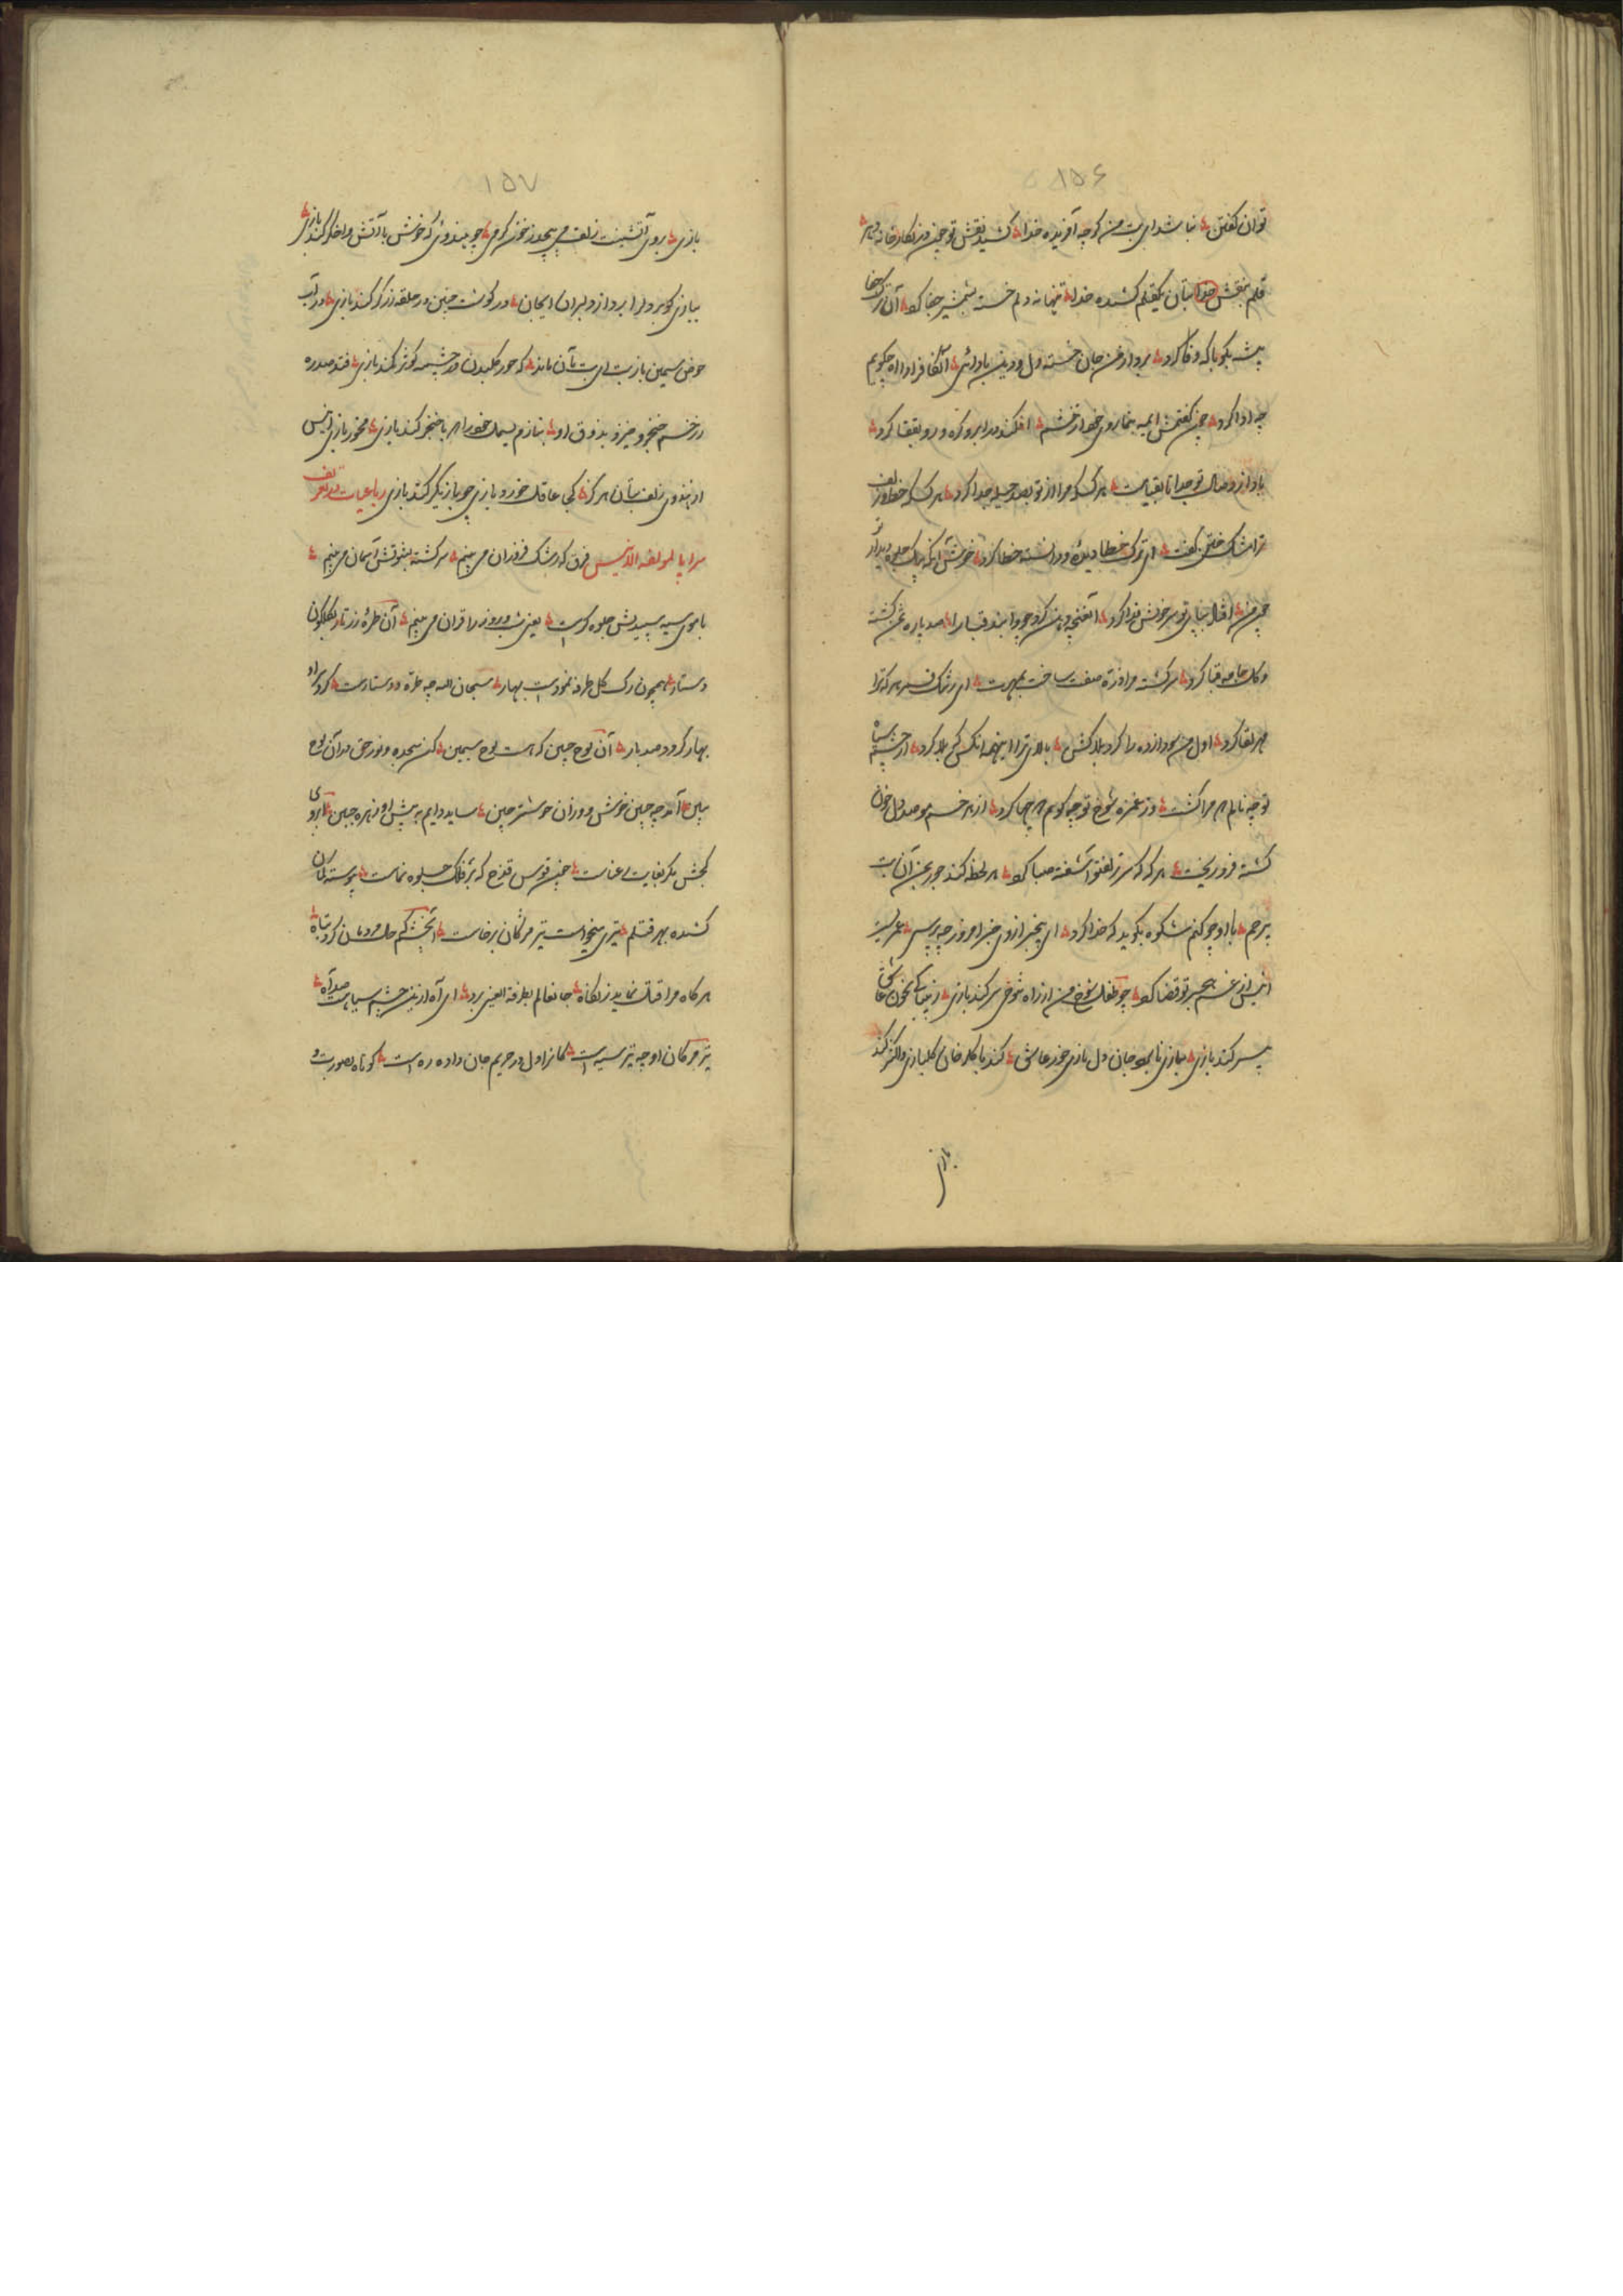 ۱۵۶
توان گفتن نباشد ای بت من کوچه آفریده خدا کشید نقش تو چون در نگارخانه دهر
قلم بنقش بتان یکقلم کشیده خدا تنها نه دلم خسته شمشیر جفا کرد آن ترک جفا
پیشه بگو با که وفا کرد برد از من جان خسته دل و دین باوائی آن کافر ادا را چگویم
چه ادا کرد چون گفتمش ای مه بنما روی خود از خشم افکند در ابرو گره و رو بقفا کرد
یارب از وصال تو جدا تا بقیامت هرکس که مرا از تو بصد حیله جدا کرد هرکس که خط و زلف
ترا مشک ختن گفت ای ترک خطا دیده و دانسته خطا کرد خوش آنکه بیک جلوه دیدار
چمن افتاد بپای تو سر خویش فدا کرد آن غنچه دهن کرد چو وا بند قبا را صد پاره تنم گشت
و گل جامه قبا کرد سرگشته مرا ذره صفت ساخت بمهرت ای رشک قمر هرکه ترا
مهر لقا کرد اول من سودازده را کرد بلاکش بالای ترا اینهمه آنکس که بلا کرد از چشم سیاه
تو چه نالم که مرا کشت وز غمزه شوخ تو چه گویم که چها کرد از هر خم مو صد دل خون
گشته فرو ریخت هرگه که سر زلف تو آشفته صبا کرد هر لحظه کند جور بمن آن بت
بیرحم با او چو کنم شکوه بگوید که خدا کرد ای بیخبر از وی خبر امروز چه پرسی عمریست
انیس از غم هجر تو قضا کرد چو طفل شوخ من از راه شوخی سر کند بازی ز بیباکی بخون عاشق
بسر کند بازی
بازی
۱۵۷
بازی بروی آتشینت زلف می پیچد ز خود گرمی چو هندوئی که خوش با آتش و اخگر کند بازی
بیازی گو برد دلرا
حوض سیمین بازیت ای بت بآن ماند که حور گلبدن در چشمه کوثر کند بازی فتد صد ره
ز زخم خنجر و خیزد بذوق او بنازم بسملت خود را که با خنجر کند بازی مخور بازی انیس
از هندوی زلف بتان هرگز کجا عاقل خورد بازی چو بازیگر کند بازی رباعیات در تعریف
سراپا لمولفه الانیس فرق که رشک فرقدان می بینم سرگشته بفوقش آسمان می بینم
با موی سیه سپیدیش جلوه گر است یعنی شب و روز را قران می بینم آن طره زرتار گلگون
دستار همچون رگ گل طرفه نمودست بهار سبحان الله چه طره و دستارست گرد سر او
بهار گردد صد بار آن لوح جبین که هست لوح سیمین کن سجده و نور حق در آن لوح
ببین آمد چه جبین خوش و زان خوشتر چین ساید دایم به پیش او زهره جبین ابروی
کجش مگر بغایت رعناست چون قوس قزح که بر فلک جلوه نماست پیوسته کمان
کشیده بهر قتلم تیری میخواست تیر مژگان برخاست آن چشم که حال مردمان کرد تباه
هرگاه مرا قتل نماید ز نگاه جانها لم بطرفة العین برد ای آه ازین چشم سیاهت صد آه
تیر مژگان او چه تیز سپه است کانرا اول در حریم جان داده ره است کوتاه بصورت و